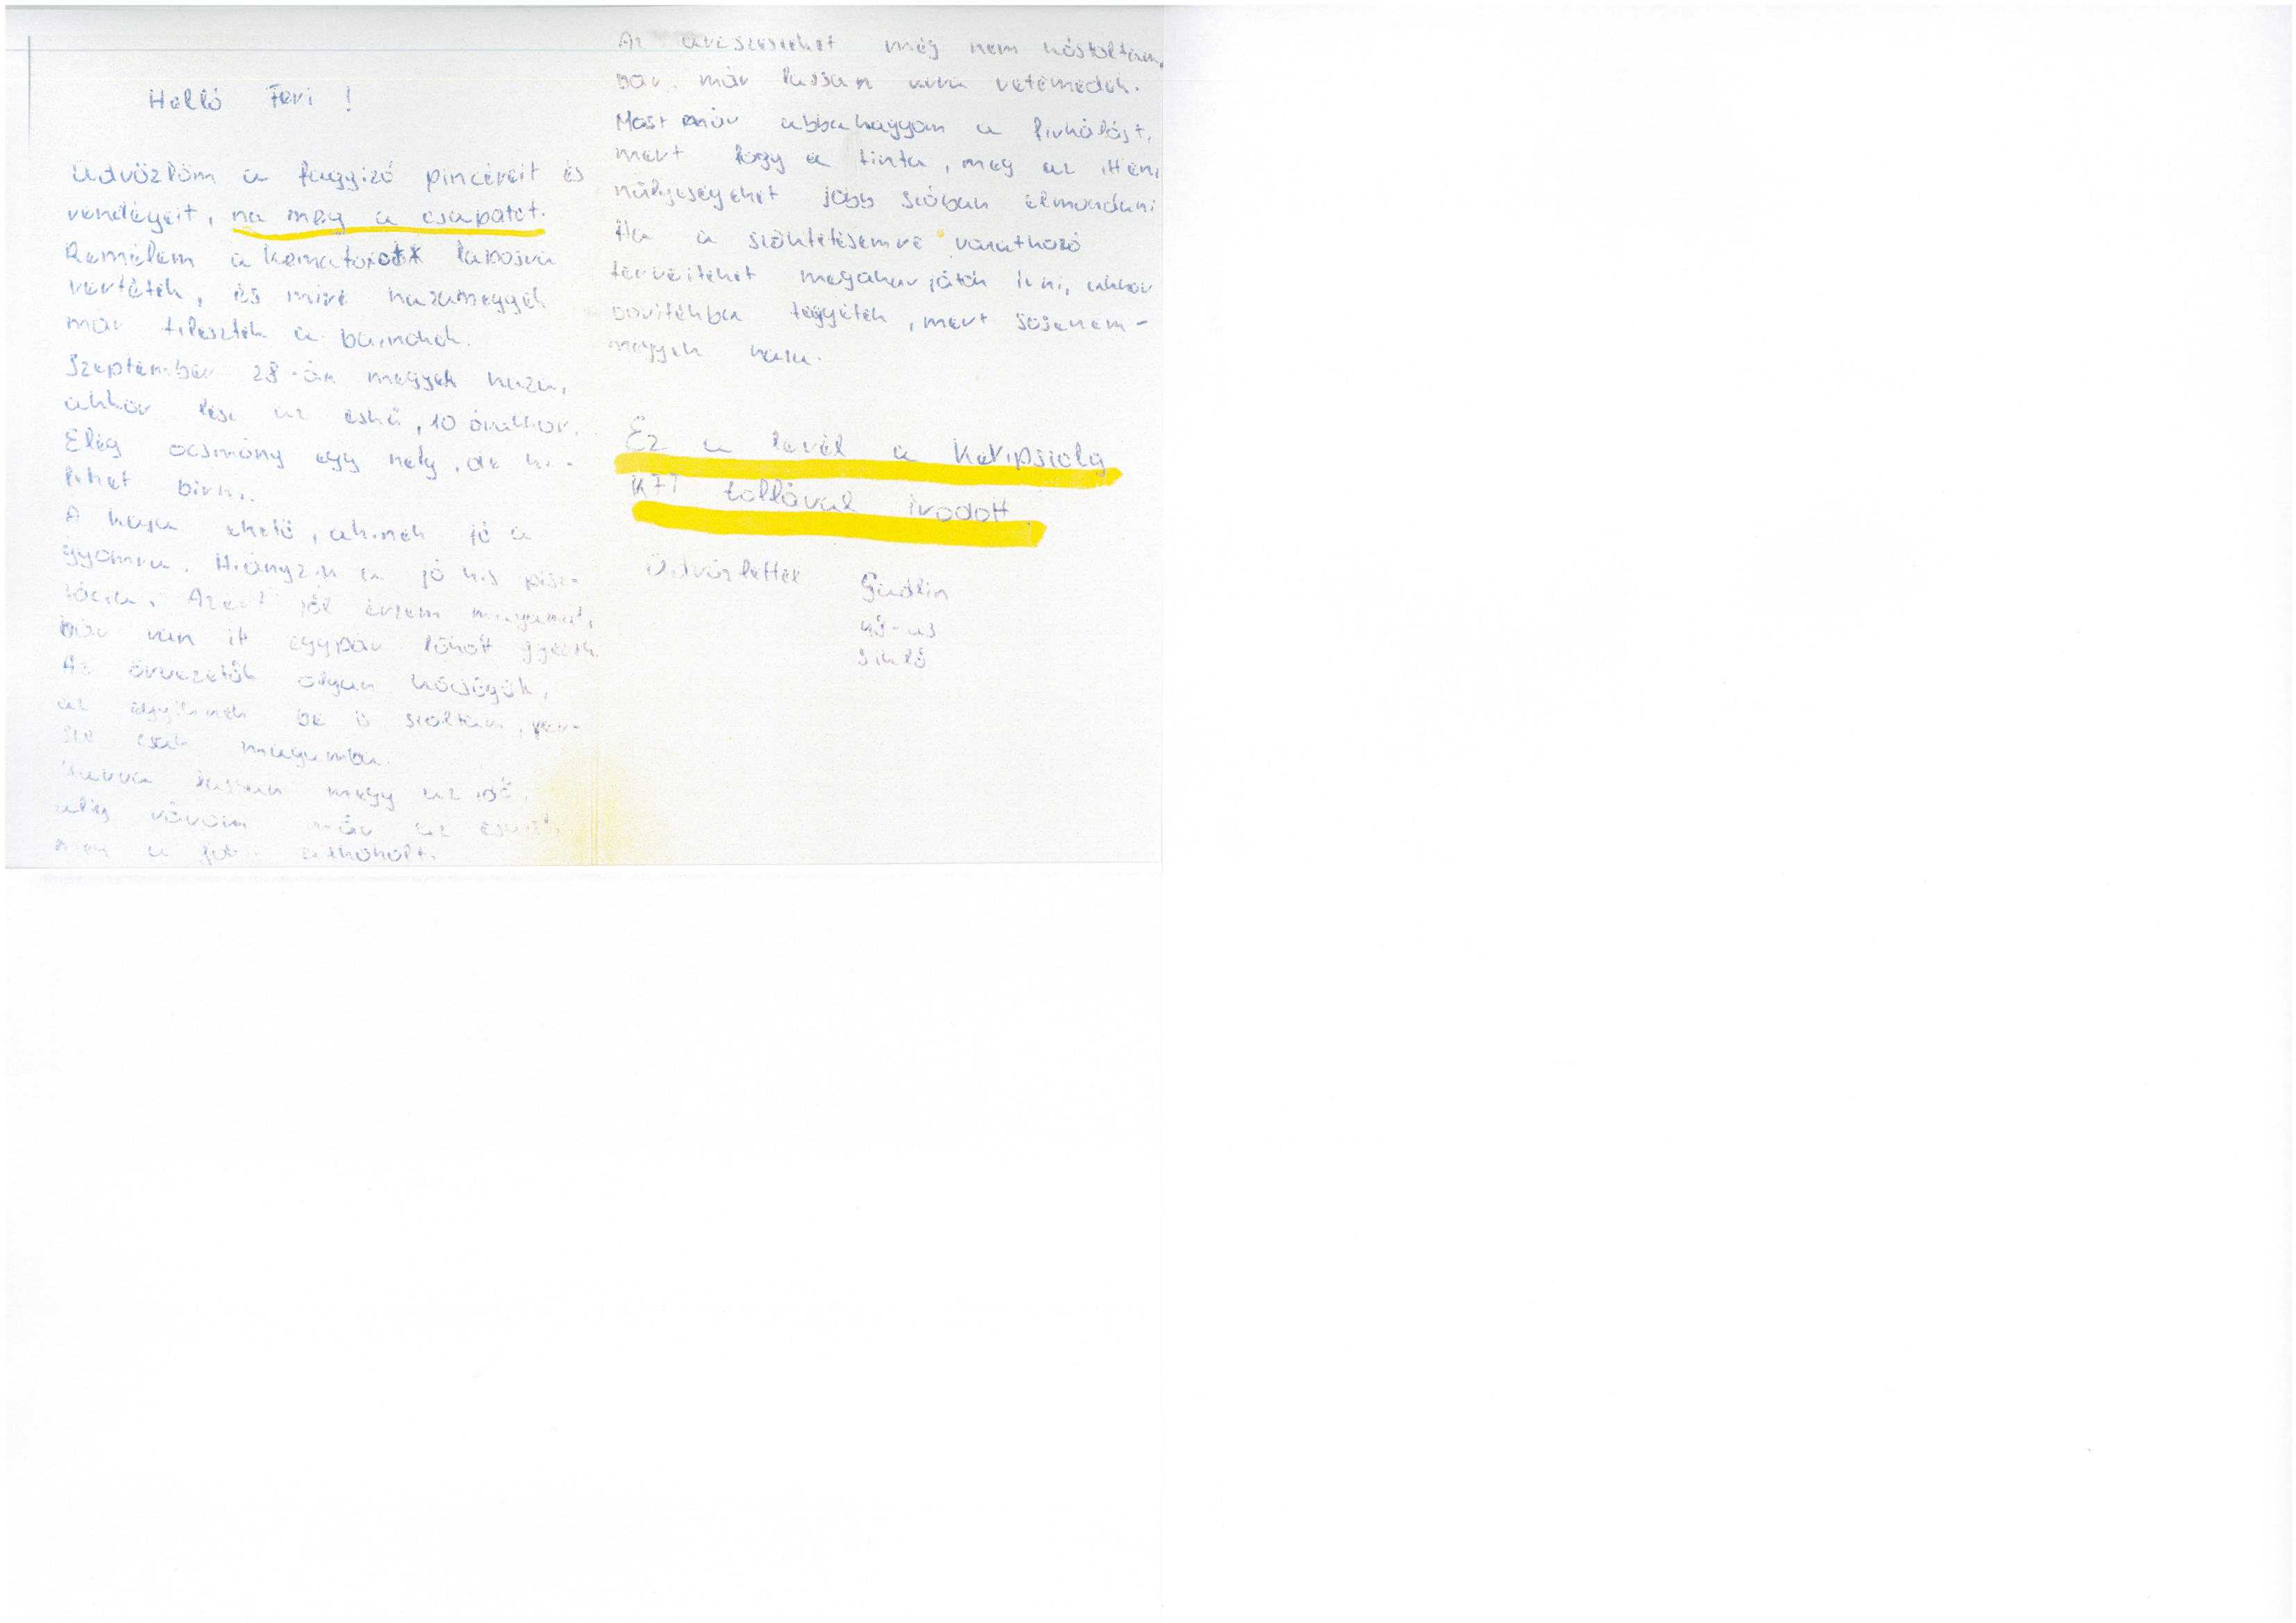 Helló Feri !
Üdvözlöm a faggizó pincéreit és
vendégeit, na meg a csapatot.
Remélem a laposra
vertétek, és mire hazamegyek
már filéztek a
Szeptember 28-án megyek haza,
akkor lesz az eskü, 10 órakkor.
Elég ocsmány egy hely, de ki-
lehet birni.
A kaja ehető, akinek jó a
gyomra. Hiányzik a jó kis
Azért jól érzem magamat,
bár van itt egypár lökött gyerek.
Az őrvezetők olyan köcsögök,
az egyiknek be is szóltam, per-
sze csak magamba.
Kurva lassan megy az idő.
alig várom már az esküt,
meg a alkoholt.
Az még nem kóstoltam,
bár már lassan arra vetemedek.
Most már abbahagyom a firkálást,
mert fogy a tinta, meg az itteni
hülyeségeket jobb szóban elmondani
Ha a szöktetésemre vonatkozó
terveiteket megakarjátok irni, akkor
boritékba tegyétek, mert sosenem-
megyek haza.
Ez a levél a
tollával irodott
Üdvözlettel Gudlin